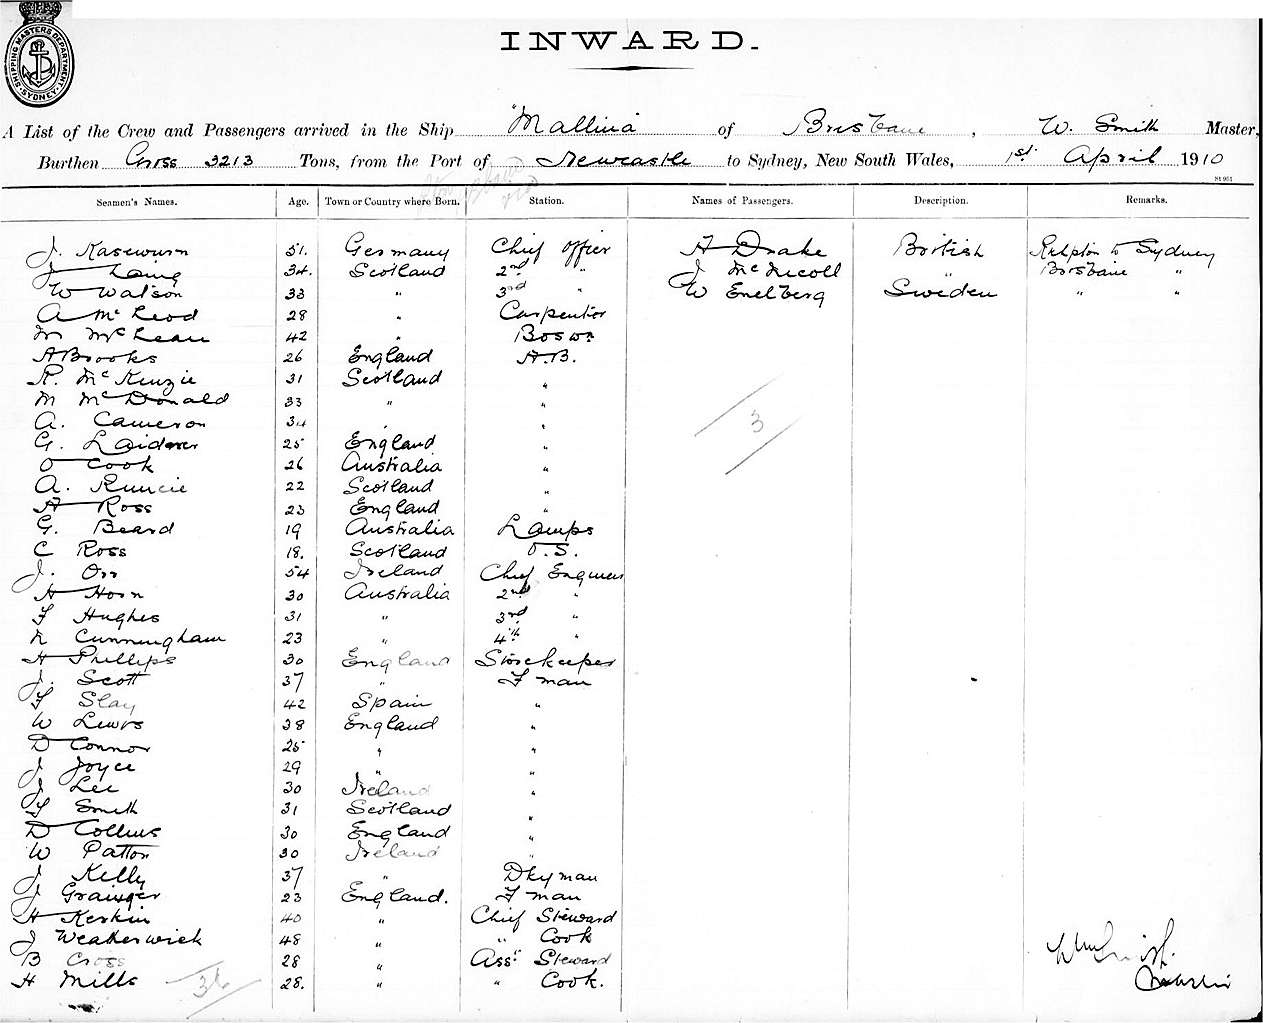 SHIPPING MASTERS DEPARTMENT SYDNEY
INWARD.
A List of the Crew and Passengers arrived in the Ship "Mallina" of Brisbane, W. Smith Master,
Burthen Gross 3213 Tons, from the Port of Newcastle to Sydney, New South Wales, 1st April 1910
St 961
Seamen's Names. Age. Town or Country where Born. Station. Names of Passengers. Description. Remarks.
J. Kasewurn 51. Germany Chief Officer A Drake British Rckpton to Sydney
J Laing 34. Scotland 2nd " J McNicoll " Brisbane "
W Watson 33 " 3rd " W Enelberg Sweden " "
A McLeod 28 " Carpenter
M McLean 42 " Boswn
A Brooks 26 England A.B.
R. McKenzie 31 Scotland "
M McDonald 33 " "
A. Cameron 34 " "
G. Laiderer 25 England "
O Cook 26 Australia "
A. Runcie 22 Scotland "
A Ross 23 England "
G. Beard 19 Australia Lamps
C Ross 18. Scotland O.S.
J. Orr 54 Ireland Chief Engineer
H Horn 30 Australia 2nd "
F Hughes 31 " 3rd "
N Cunningham 23 " 4th "
H Phillips 30 England Storekeeper
J. Scott 37 " F man
F Slay 42 Spain "
W Lewis 38 England "
D Connor 25 " "
J Joyce 29 " "
J Lee 30 Ireland "
F Smith 31 Scotland "
D Collins 30 England "
W Patton 30 Ireland "
J Kelly 37 " Dkyman
J Grainger 23 England. F man
H Kerkin 40 " Chief Steward
J Weatherwick 48 " " Cook
B Cross 28 " Asst Steward
H Mills 28. " " Cook.
3
36
Wm Smith
Master